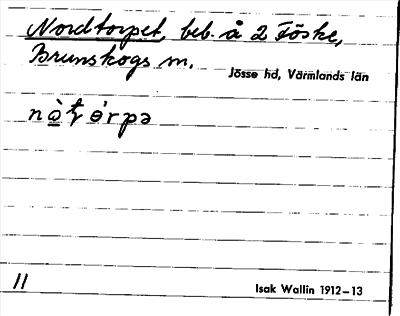 Nordtorpet, beb. å 2 Föske,
Brunskogs sn.
Jösse hd, Värmlands län
11
Isak Wallin 1912–13